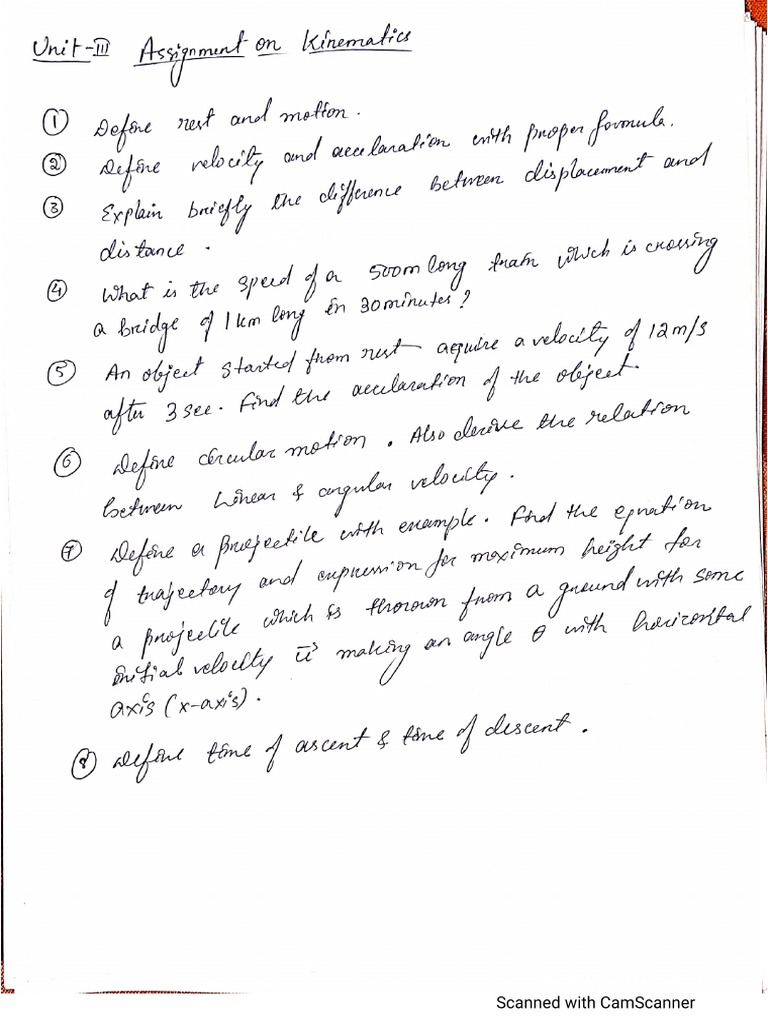 Unit-III Assignment on Kinematics
① Define rest and motion.
② Define velocity and accelaration with proper formula.
③ Explain briefly the difference between displacement and
distance.
④ What is the speed of a 500m long train which is crossing
a bridge of 1km long in 30 minutes?
⑤ An object started from rest acquire a velocity of 12m/s
after 3 sec. Find the accelaration of the object.
⑥ Define circular motion. Also derive the relation
between linear & angular velocity.
⑦ Define a projectile with example. Find the equation
of trajectory and expression for maximum height for
a projectile which is thrown from a ground with some
initial velocity u making an angle θ with horizontal
axis (x-axis).
⑧ Define time of ascent & time of descent.
Scanned with CamScanner